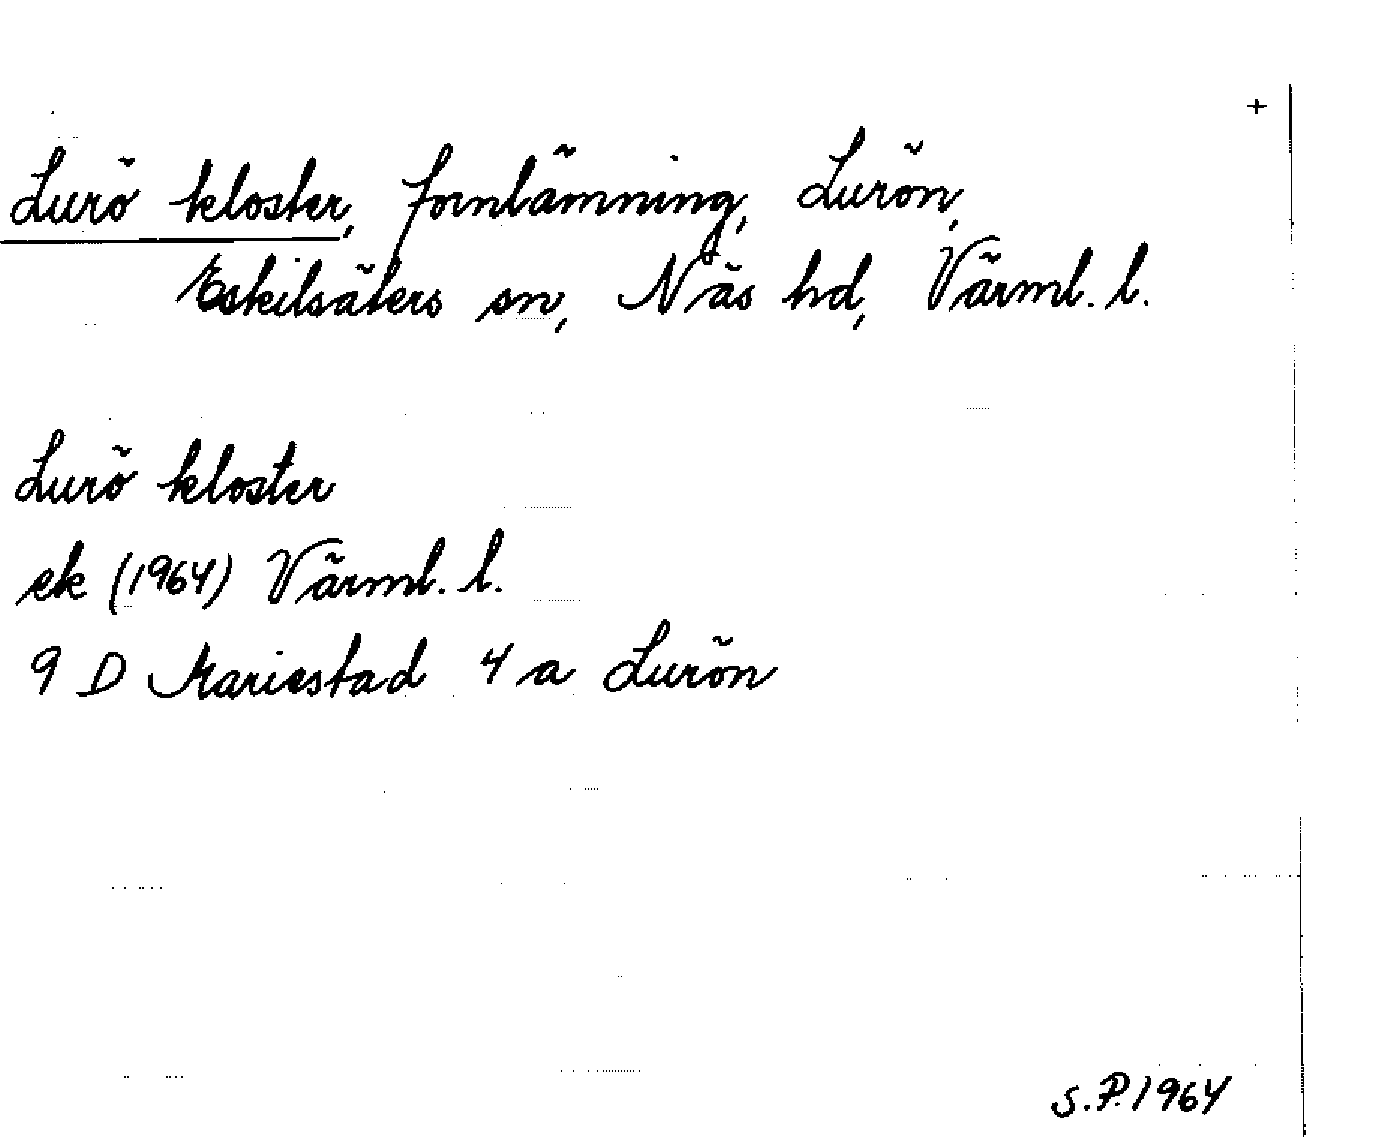 +
Lurö kloster, fornlämning, Lurön,
Eskilsäters sn, Näs hd, Värml. l.
Lurö kloster
ek (1964) Värml. l.
9 D Mariestad 4 a Lurön
S.P. 1964